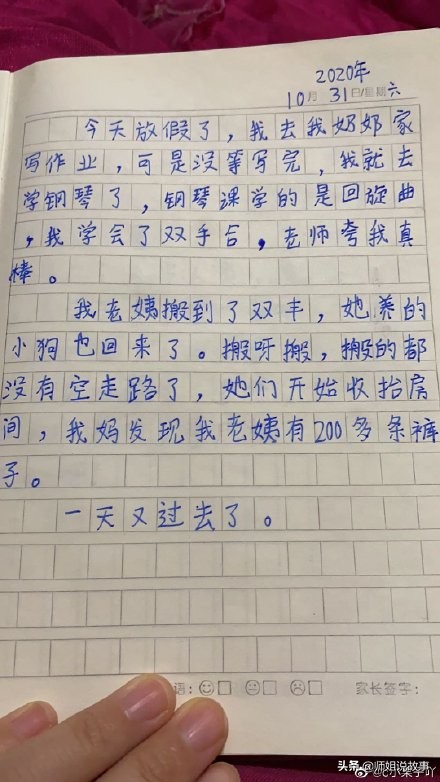 2020年
10月 31日/星期六
今天放假了，我去我奶奶家
写作业，可是没等写完，我就去
学钢琴了，钢琴课学的是回旋曲
，我学会了双手合，老师夸我真
棒。
我老姨搬到了双丰，她养的
小狗也回来了。搬呀搬，搬的都
没有空走路了，她们开始收拾房
间，我妈发现我老姨有200多条裤
子。
一天又过去了。
语： 家长签字：
头条@师姐说故事